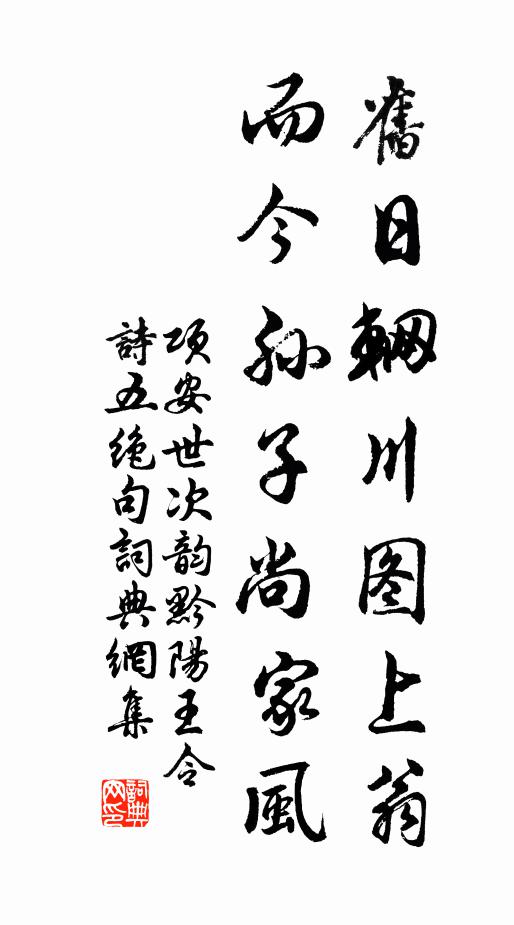 舊日輞川图上翁
而今孙子尚家風
项安世次韵黔陽王令
詩五绝句詞典網集
詞典
网印